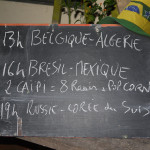 13h BELGIQUE-ALGERIE
16h BRESIL-MEXIQUE
2 CAIPI = 8 Reais + POPCORN
19h RUSSIE-COREE du SUD